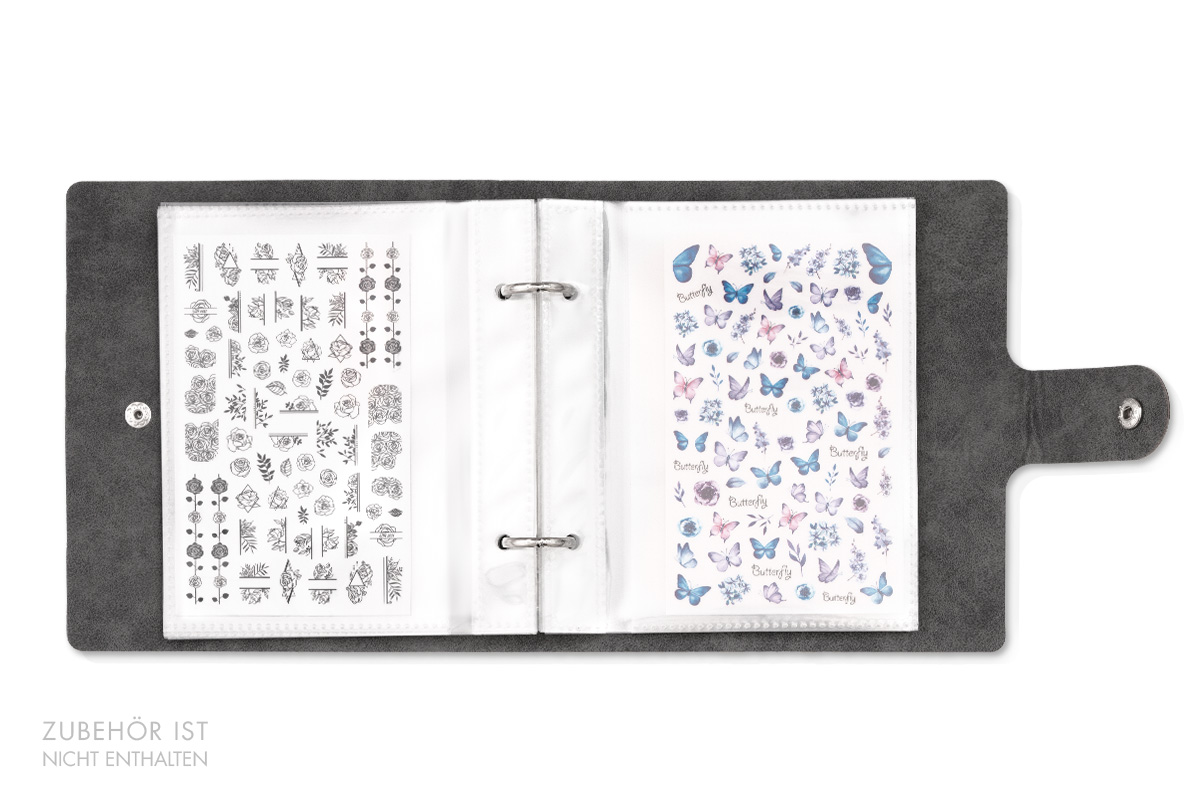 Butterfly
Butterfly
Butterfly
Butterfly
Butterfly
Butterfly
Butterfly
ZUBEHÖR IST
NICHT ENTHALTEN